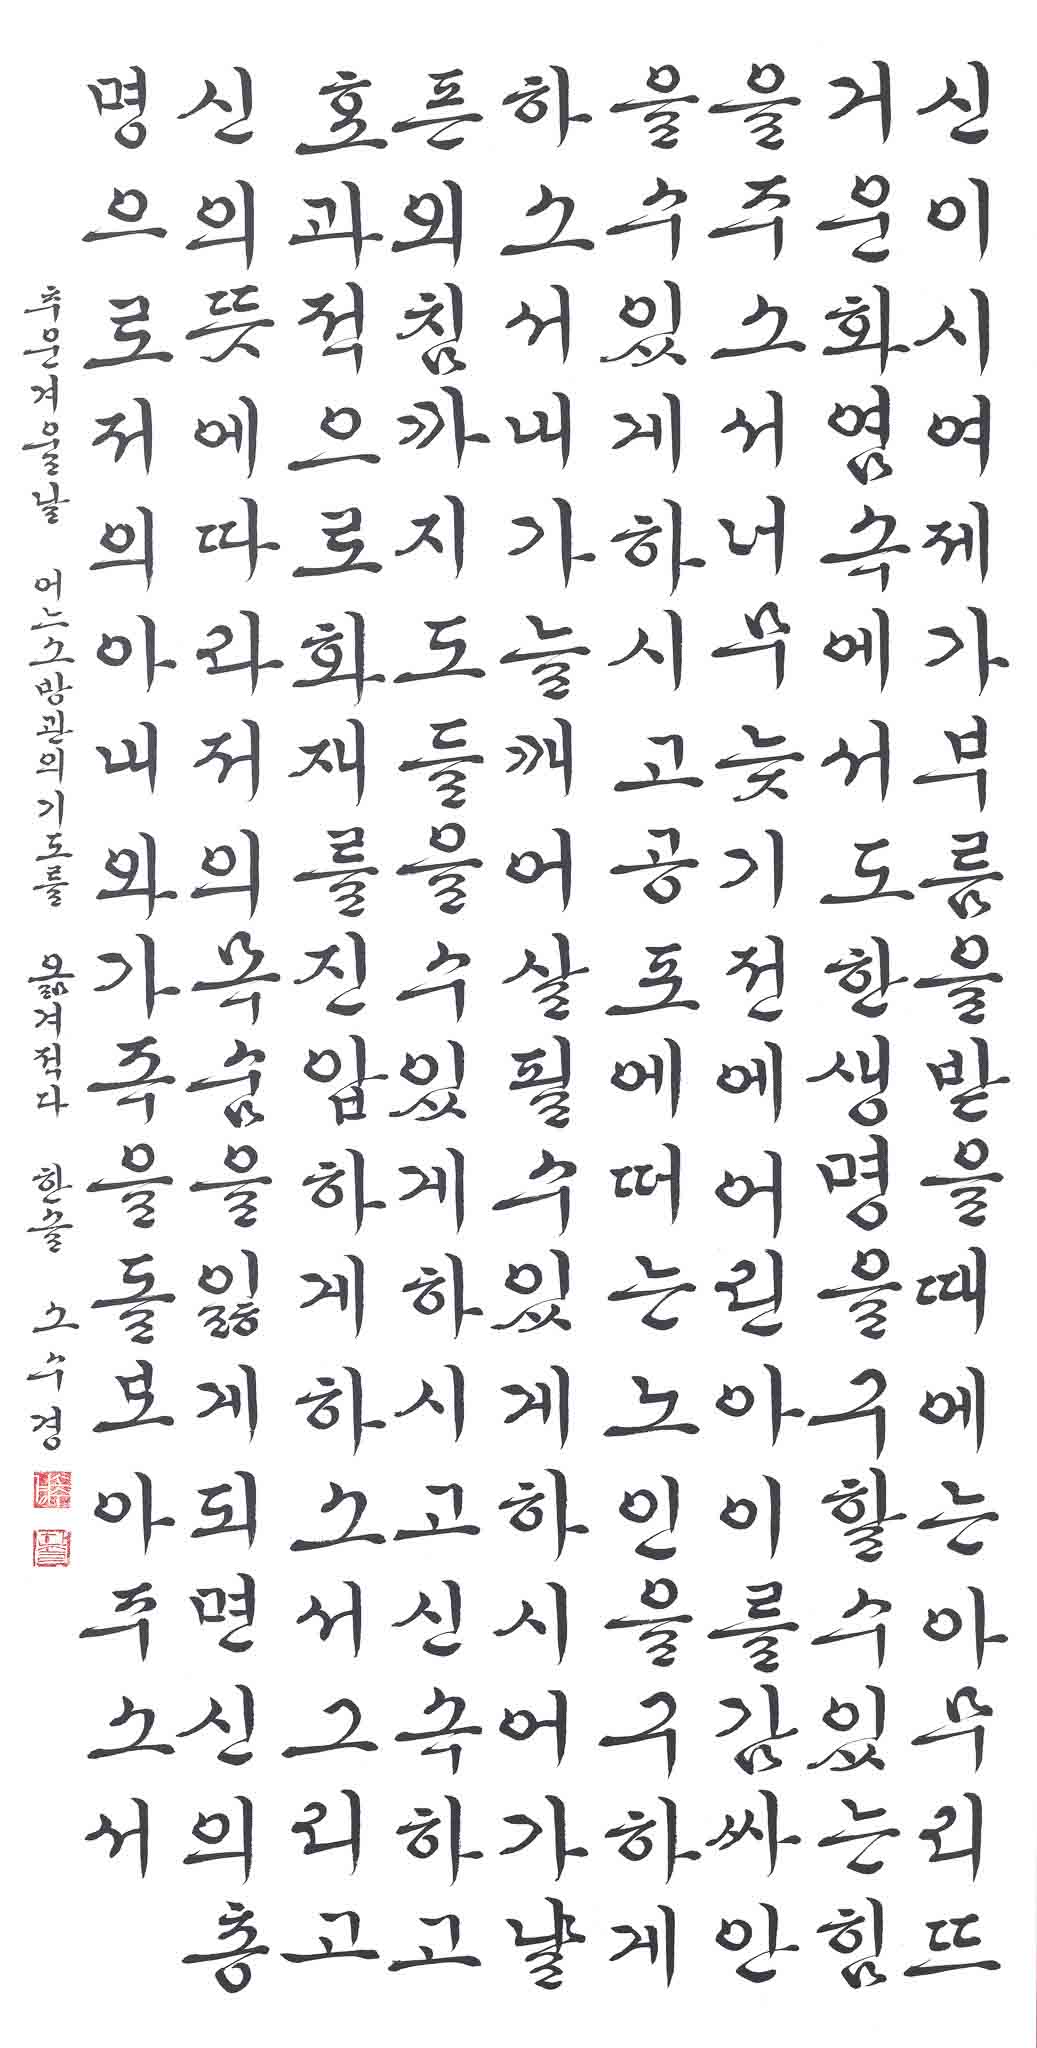 신이시여제가부름을받을때에는아무리뜨
거운화염속에서도한생명을구할수있는힘
을주소서너무늦기전에어린아이를감싸안
을수있게하시고공포에떠는노인을구하게
하소서내가늘깨어살필수있게하시어가냘
픈외침까지도들을수있게하시고신속하고
효과적으로화재를진압하게하소서그리고
신의뜻에따라저의목숨을잃게되면신의총
명으로저의아내와가족을돌보아주소서
추운겨울날 어느소방관의기도를 옮겨적다 한솔 소수경